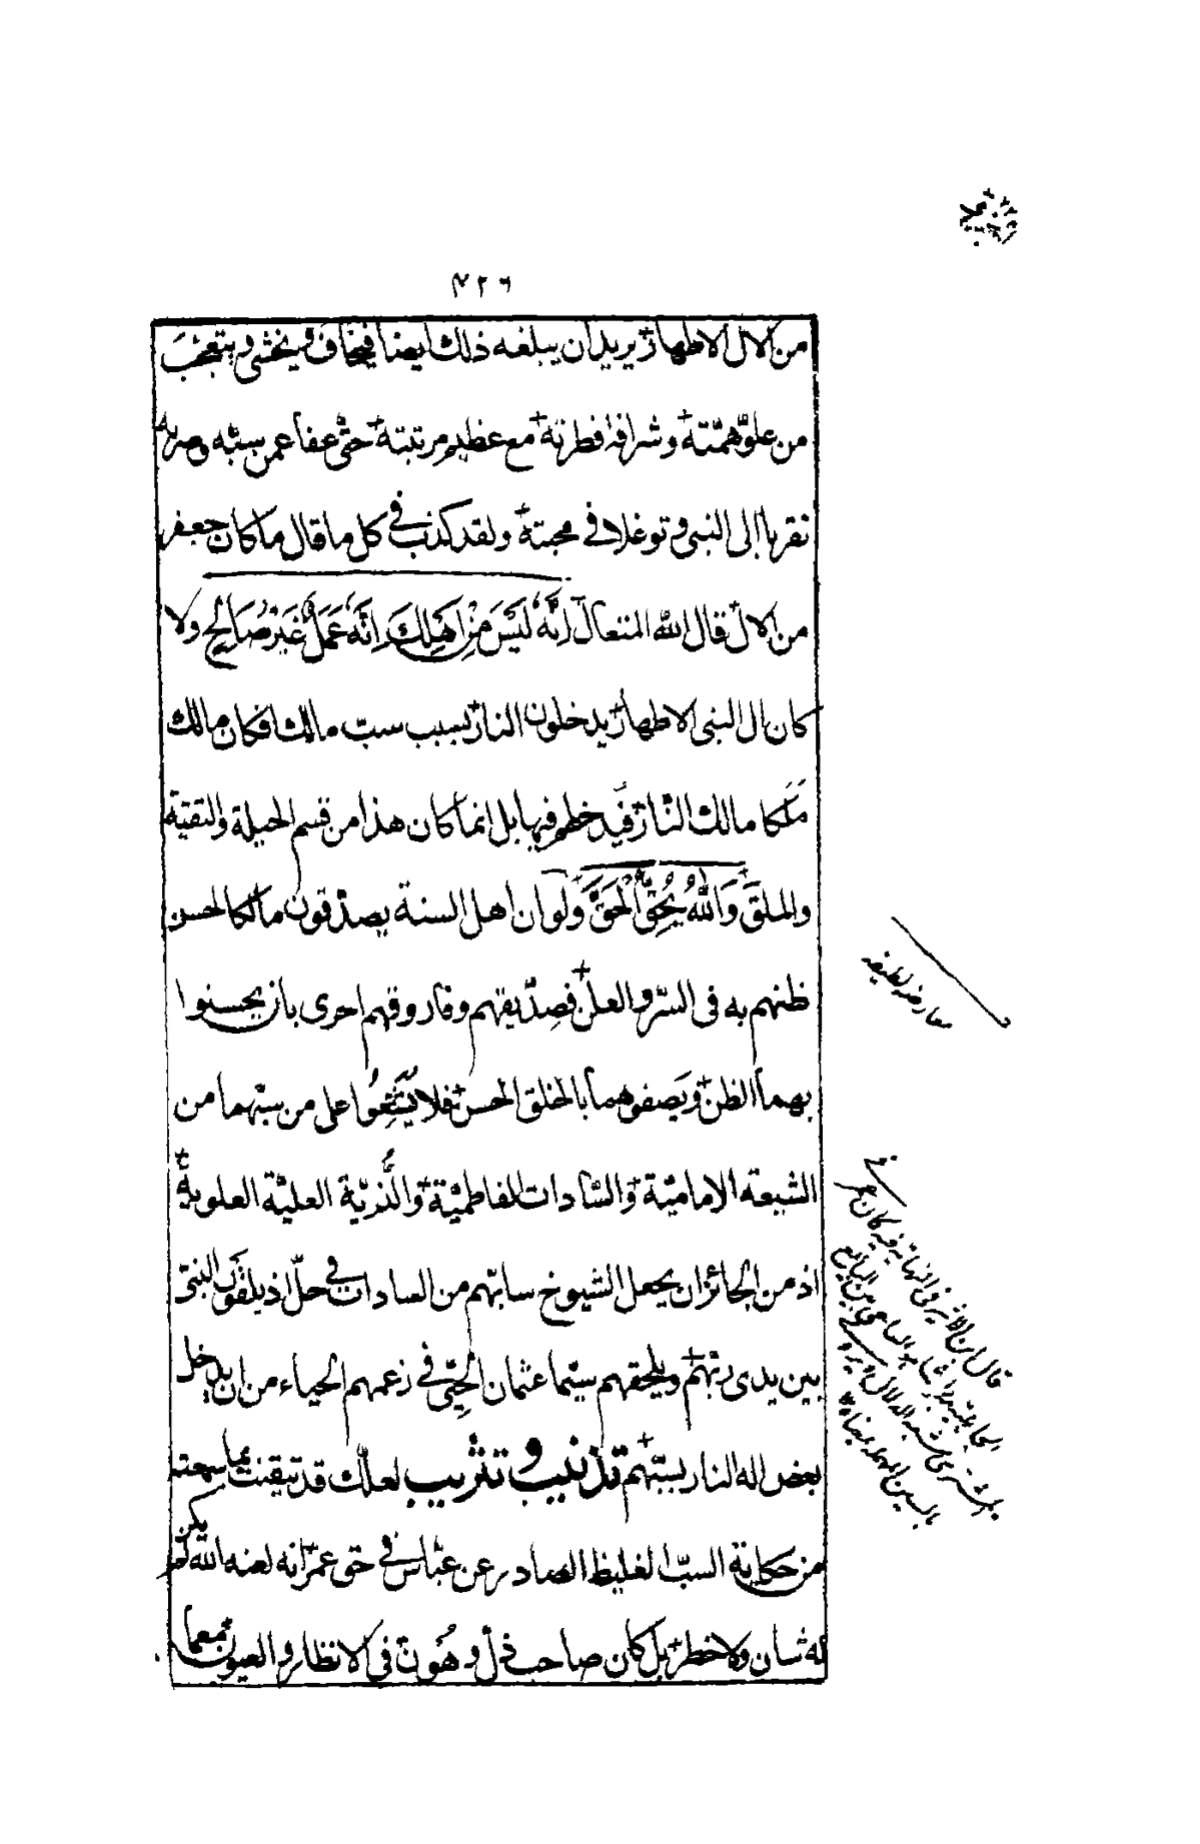 ٤٢٦
من الال الاطهار يريد ان يبلغه ذلك ايضا فيخاف ويخشى ويتعجب
من علو همّته وشرافة فطرته مع عظيم مرتبته حتى عفا عمن سبّه وضربه
تقربا الى النبى وتوغلا فى محبته ولقد كذب فى كل ما قال ما كان جعفر
من الال قال الله المتعال اِنَّهُ لَيْسَ مِنْ اَهْلِكَ اِنَّهُ عَمَلٌ غَيْرُ صَالِحٍ ولا
كان ال النبى الاطهار يدخلون النار بسبب سبّ مالك افكان مالك
مَلَكا مالك النار فيدخلهم فيها بل انما كان هذا من قسم الحيلة والتقيّة
والملق وَاللهُ يُحِقُّ الْحَقَّ ولو ان اهل السنة يصدّقون مالكا لحسن
ظنهم به فى السرّ والعلن فصِدّيقهم وفاروقهم احرى بان يحسنوا
بهما الظن ويَصفوهما بالخلق الحسن فلا يُشَنِّعُوا على من سبّهما من
الشيعة الاماميّة والسّادات الفاطميّة والذُّريّة العليّة العلويةِ
اذ من الجائز ان يجعل الشيوخ سابّهم من السادات فى حلّ اذ يلقون النبىّ
بين يدى ربّهم ويلحقهم سيّما عثمان الحَيِىّ فى زعمهم الحياء من ان يدخل
بعض اله النار بسبّهم تذنيب وتثريب لعلّك قد تيقنت بما سمعته
من حكاية السبّ الغليظ الصادر عن عبّاس فى حق عمر انه لعنه الله لم يكن
له شان ولا خطر بل كان صاحب ذل وهُون فى الانظار والعيون بمعما
معارضه لطيفه
قال ابن الاثير فى النهاية فيه كان عمر فى
الجاهلية
بالسين المهملة